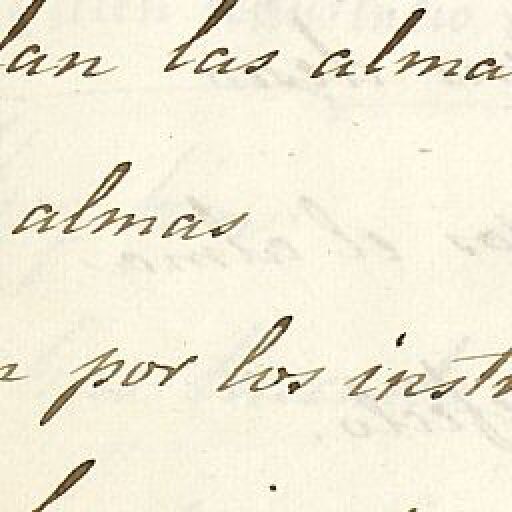 lan las alma
almas
n por los instr